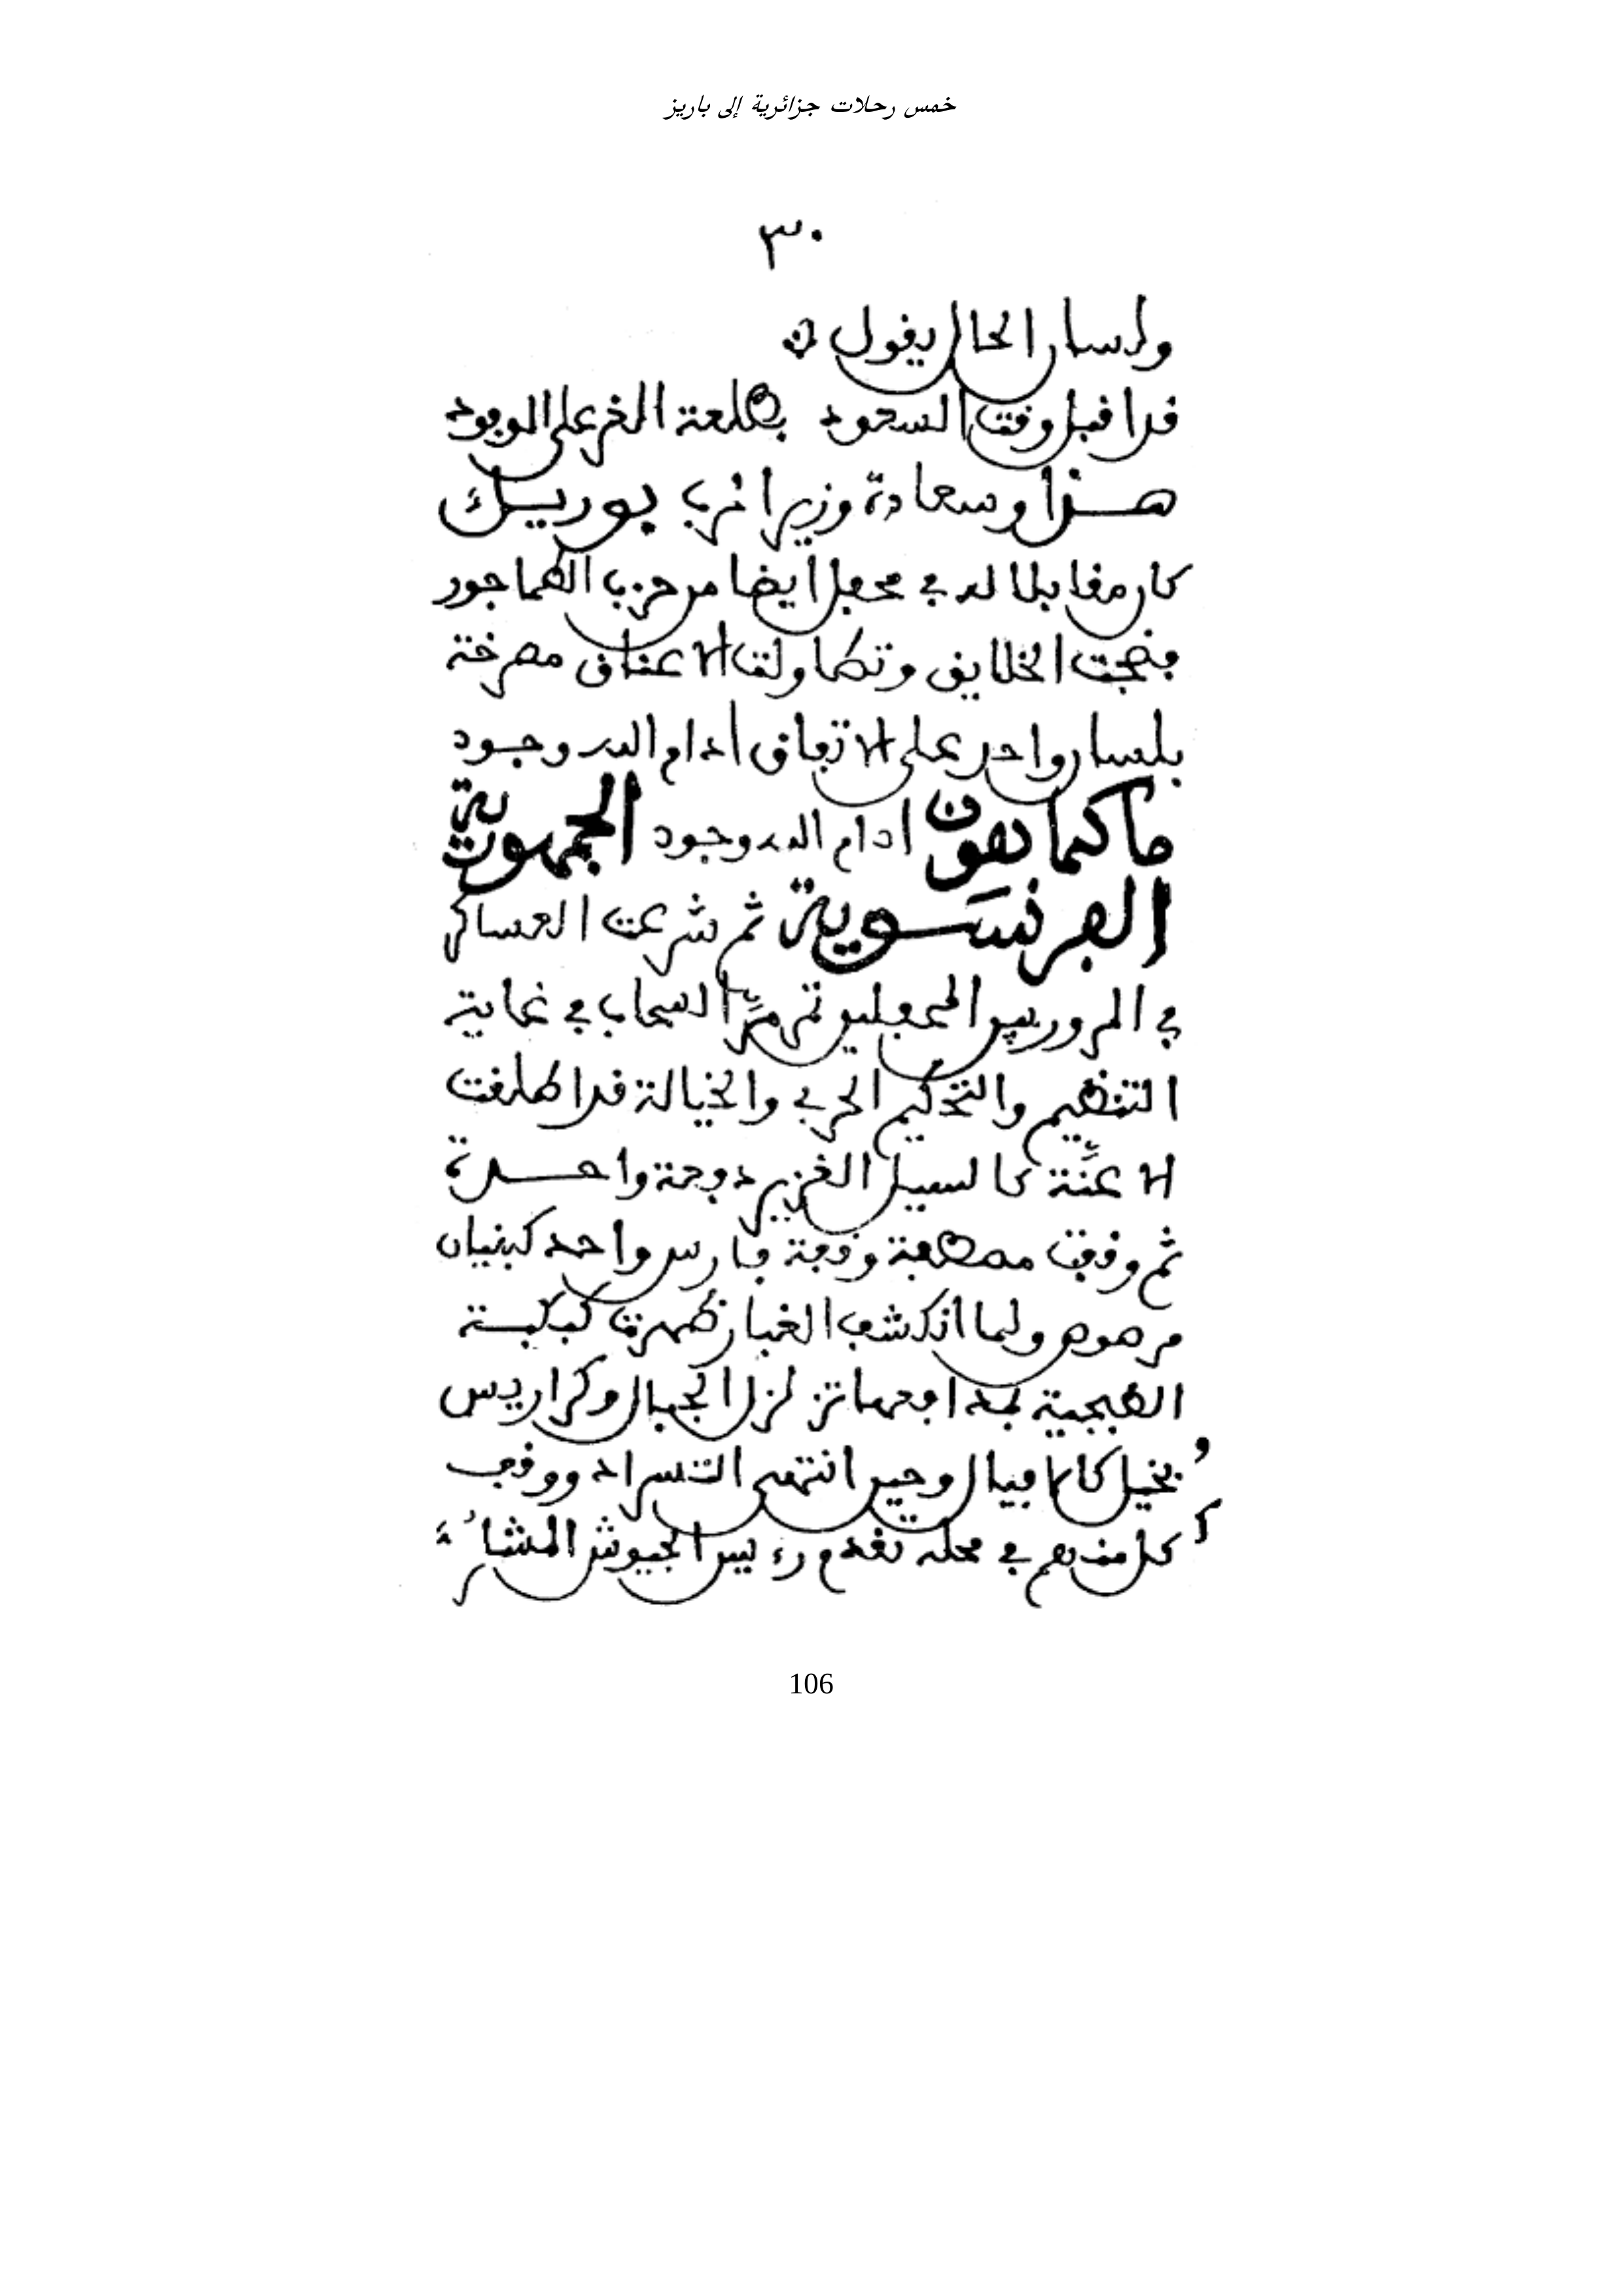 خمس رحلات جزائرية إلى باريز
٣٠
ولسان الحال يقول
قد اقبل وقت السعود بطلعة الغر على الوفود
هذا وسعادة وزير الحرب بوريل
كان مقابلا له في محفل ايضا من حزب الطماجور
فضجت الخلايق وتطاولت الاعناق مصرخة
بلسان واحد على الاتفاق ادام الله وجود
ماكماهون ادام الله وجود الجمهورية
الفرنسوية ثم شرعت العساكر
في المرور بين المحفلين تمر مرّ السحاب في غاية
التنظيم والتحكيم الحربي والخيالة قد اطلقت
الاعنّة كالسيل الغزير دفعة واحدة
ثم وقفت مصطفة وقفة فارس واحد كبنيان
مرصوص ولما انكشف الغبار ظهرت كبكبة
الطبجية بمدافعها تزلزل الجبال وكراريس
بخيل كالافيال وحين انتهى التسراد ووقف
كل منهم في محله تقدم رءيس الجيوش المشار
106